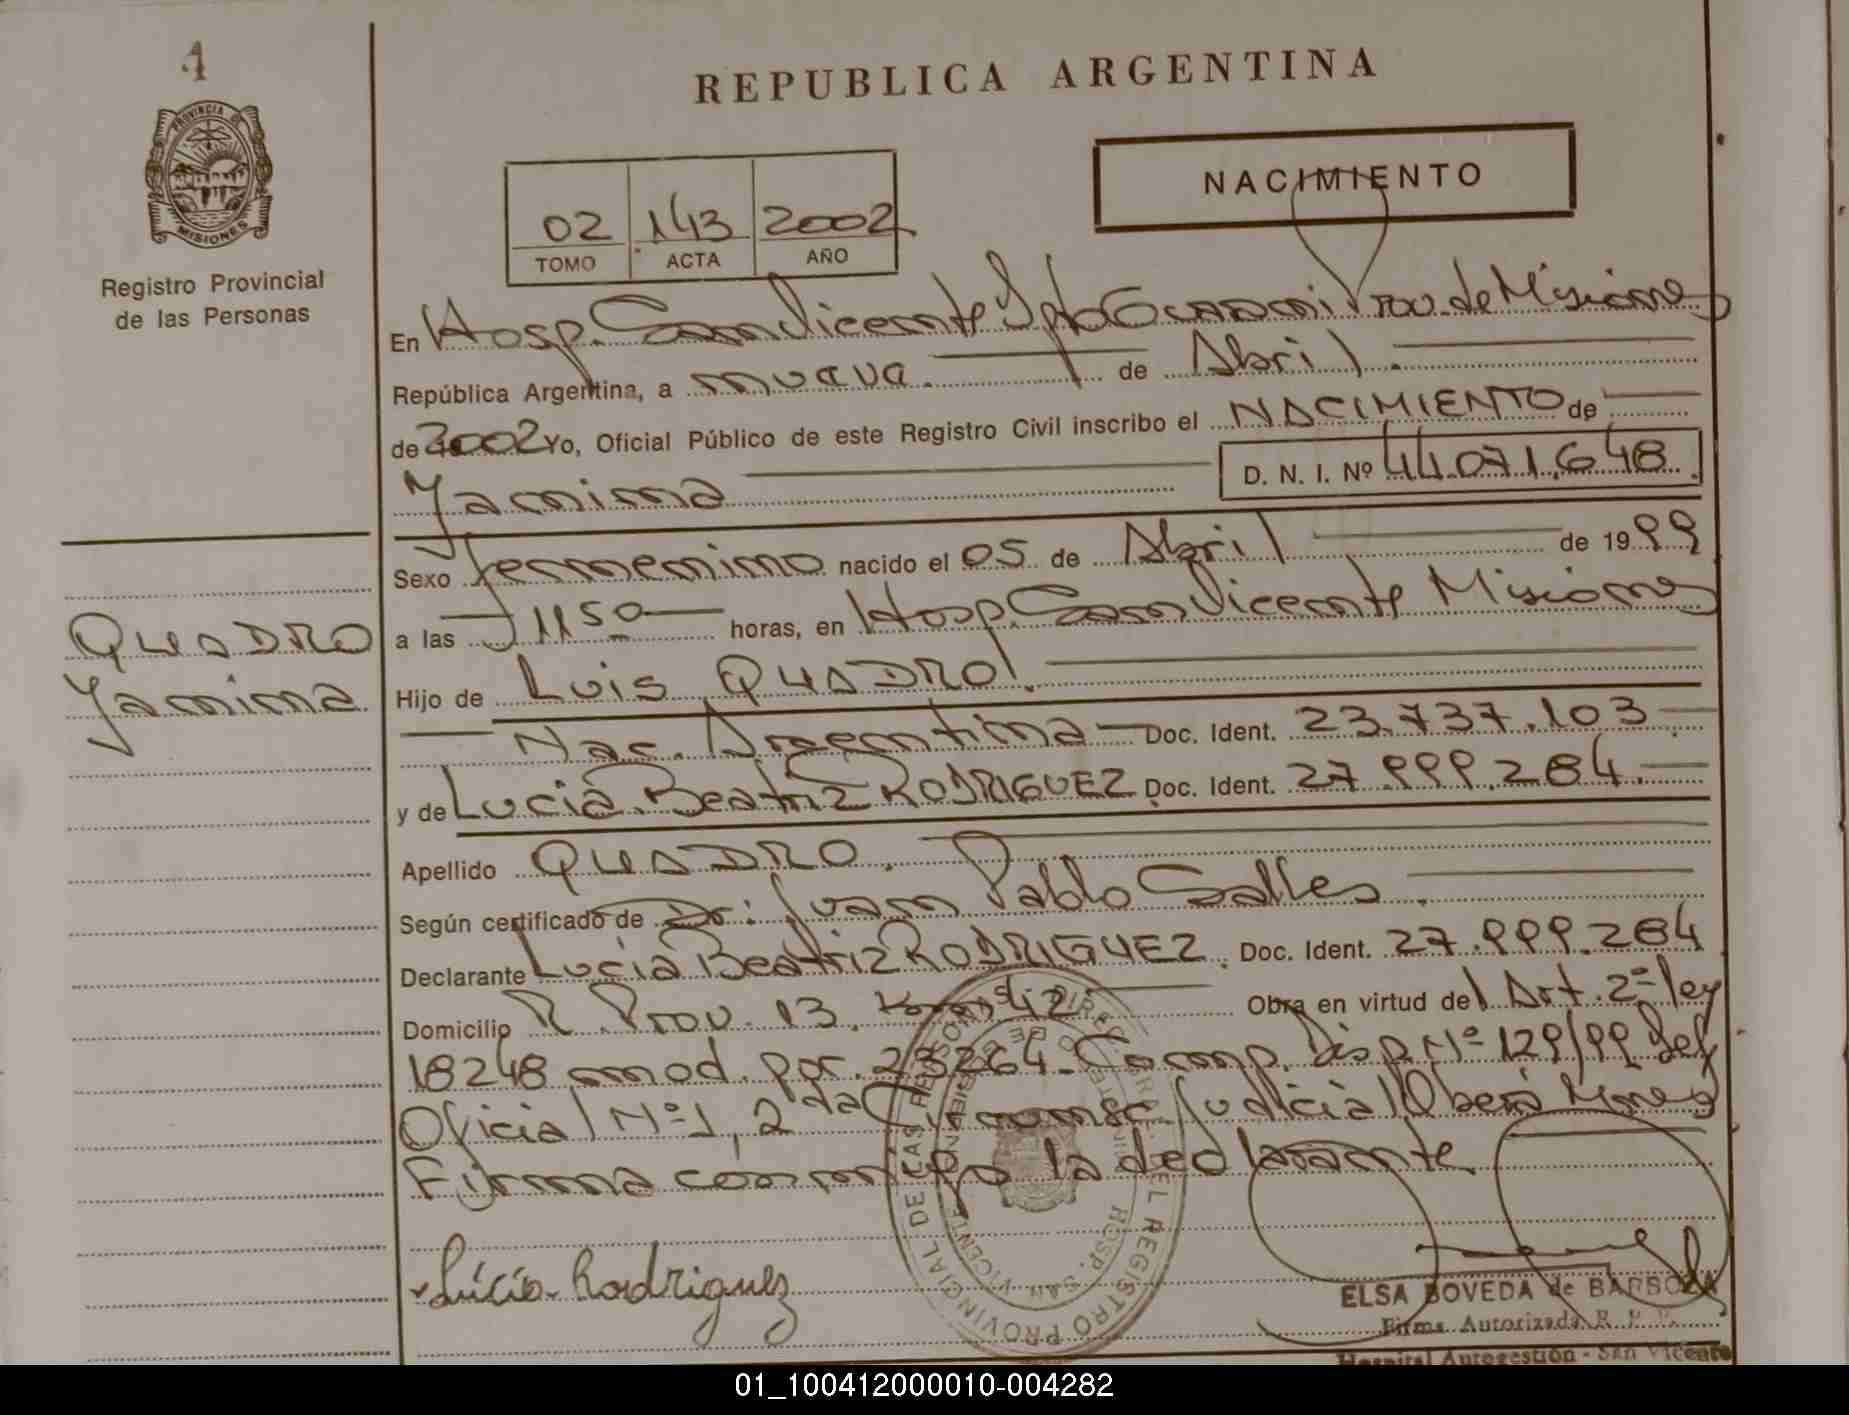 1
REPUBLICA ARGENTINA
PROVINCIA DE
MISIONES
Registro Provincial
de las Personas
02 143 2002
TOMO ACTA AÑO
NACIMIENTO
En Hosp. San Vicente Dpto Guaraní Prov. de Misiones
República Argentina, a nueve de Abril
de 2002 Yo, Oficial Público de este Registro Civil inscribo el NACIMIENTO de
Yanina D. N. I. Nº 44.071.648
Sexo femenino nacido el 05 de Abril de 1999
QUADRO
Yanina
a las 1150 horas, en Hosp. San Vicente Misiones
Hijo de Luis QUADRO
Nac. Argentina Doc. Ident. 23.737.103
y de Lucia Beatriz RODRIGUEZ Doc. Ident. 27.999.284
Apellido QUADRO
Según certificado de Dr: Juan Pablo Salles
Declarante Lucia Beatriz RODRIGUEZ Doc. Ident. 27.999.284
Domicilio R. Prov. 13. Obra en virtud del Art. 2º ley
18248 mod. por 23264 Comp. Disp. Nº 129/99 Def
Oficial Nº 1, 2da Circunsc. Judicial Oberá Mnes
Firma conmigo la declarante
Lucia Rodriguez
ELSA BOVEDA de BARBOZA
Firma Autorizada R. P. P.
Hospital Autogestión - San Vicente
01_100412000010-004282